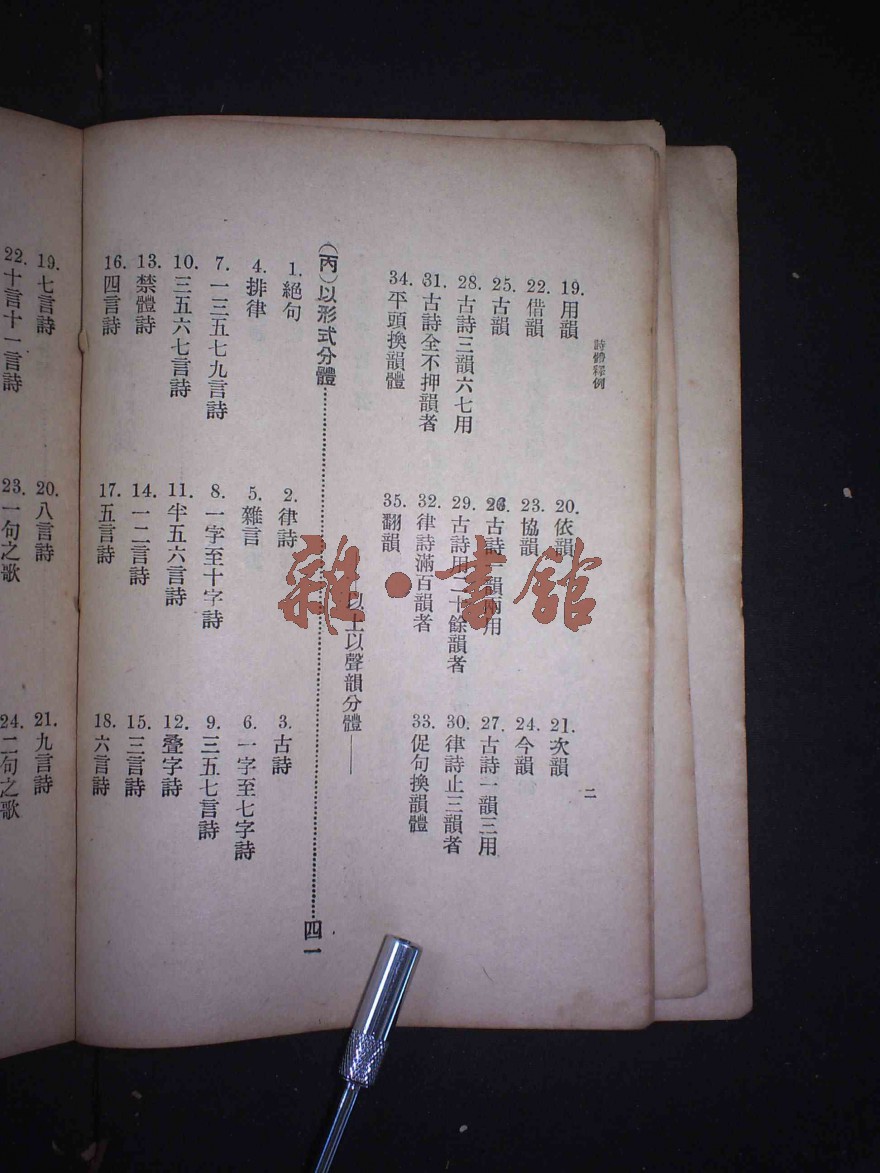 詩體釋例
二
19. 用韻
20. 依韻
21. 次韻
22. 借韻
23. 協韻
24. 今韻
25. 古韻
26. 古詩一韻兩用
27. 古詩一韻三用
28. 古詩三韻六七用
29. 古詩用二十餘韻者
30. 律詩止三韻者
31. 古詩全不押韻者
32. 律詩滿百韻者
33. 促句換韻體
34. 平頭換韻體
35. 翻韻
——以上以聲韻分體——
(丙)以形式分體……四一
1. 絕句
2. 律詩
3. 古詩
4. 排律
5. 雜言
6. 一字至七字詩
7. 一三五七九言詩
8. 一字至十字詩
9. 三五七言詩
10. 三五六七言詩
11. 半五六言詩
12. 疊字詩
13. 禁體詩
14. 一二言詩
15. 三言詩
16. 四言詩
17. 五言詩
18. 六言詩
19. 七言詩
20. 八言詩
21. 九言詩
22. 十言十一言詩
23. 一句之歌
24. 二句之歌
雜·書館